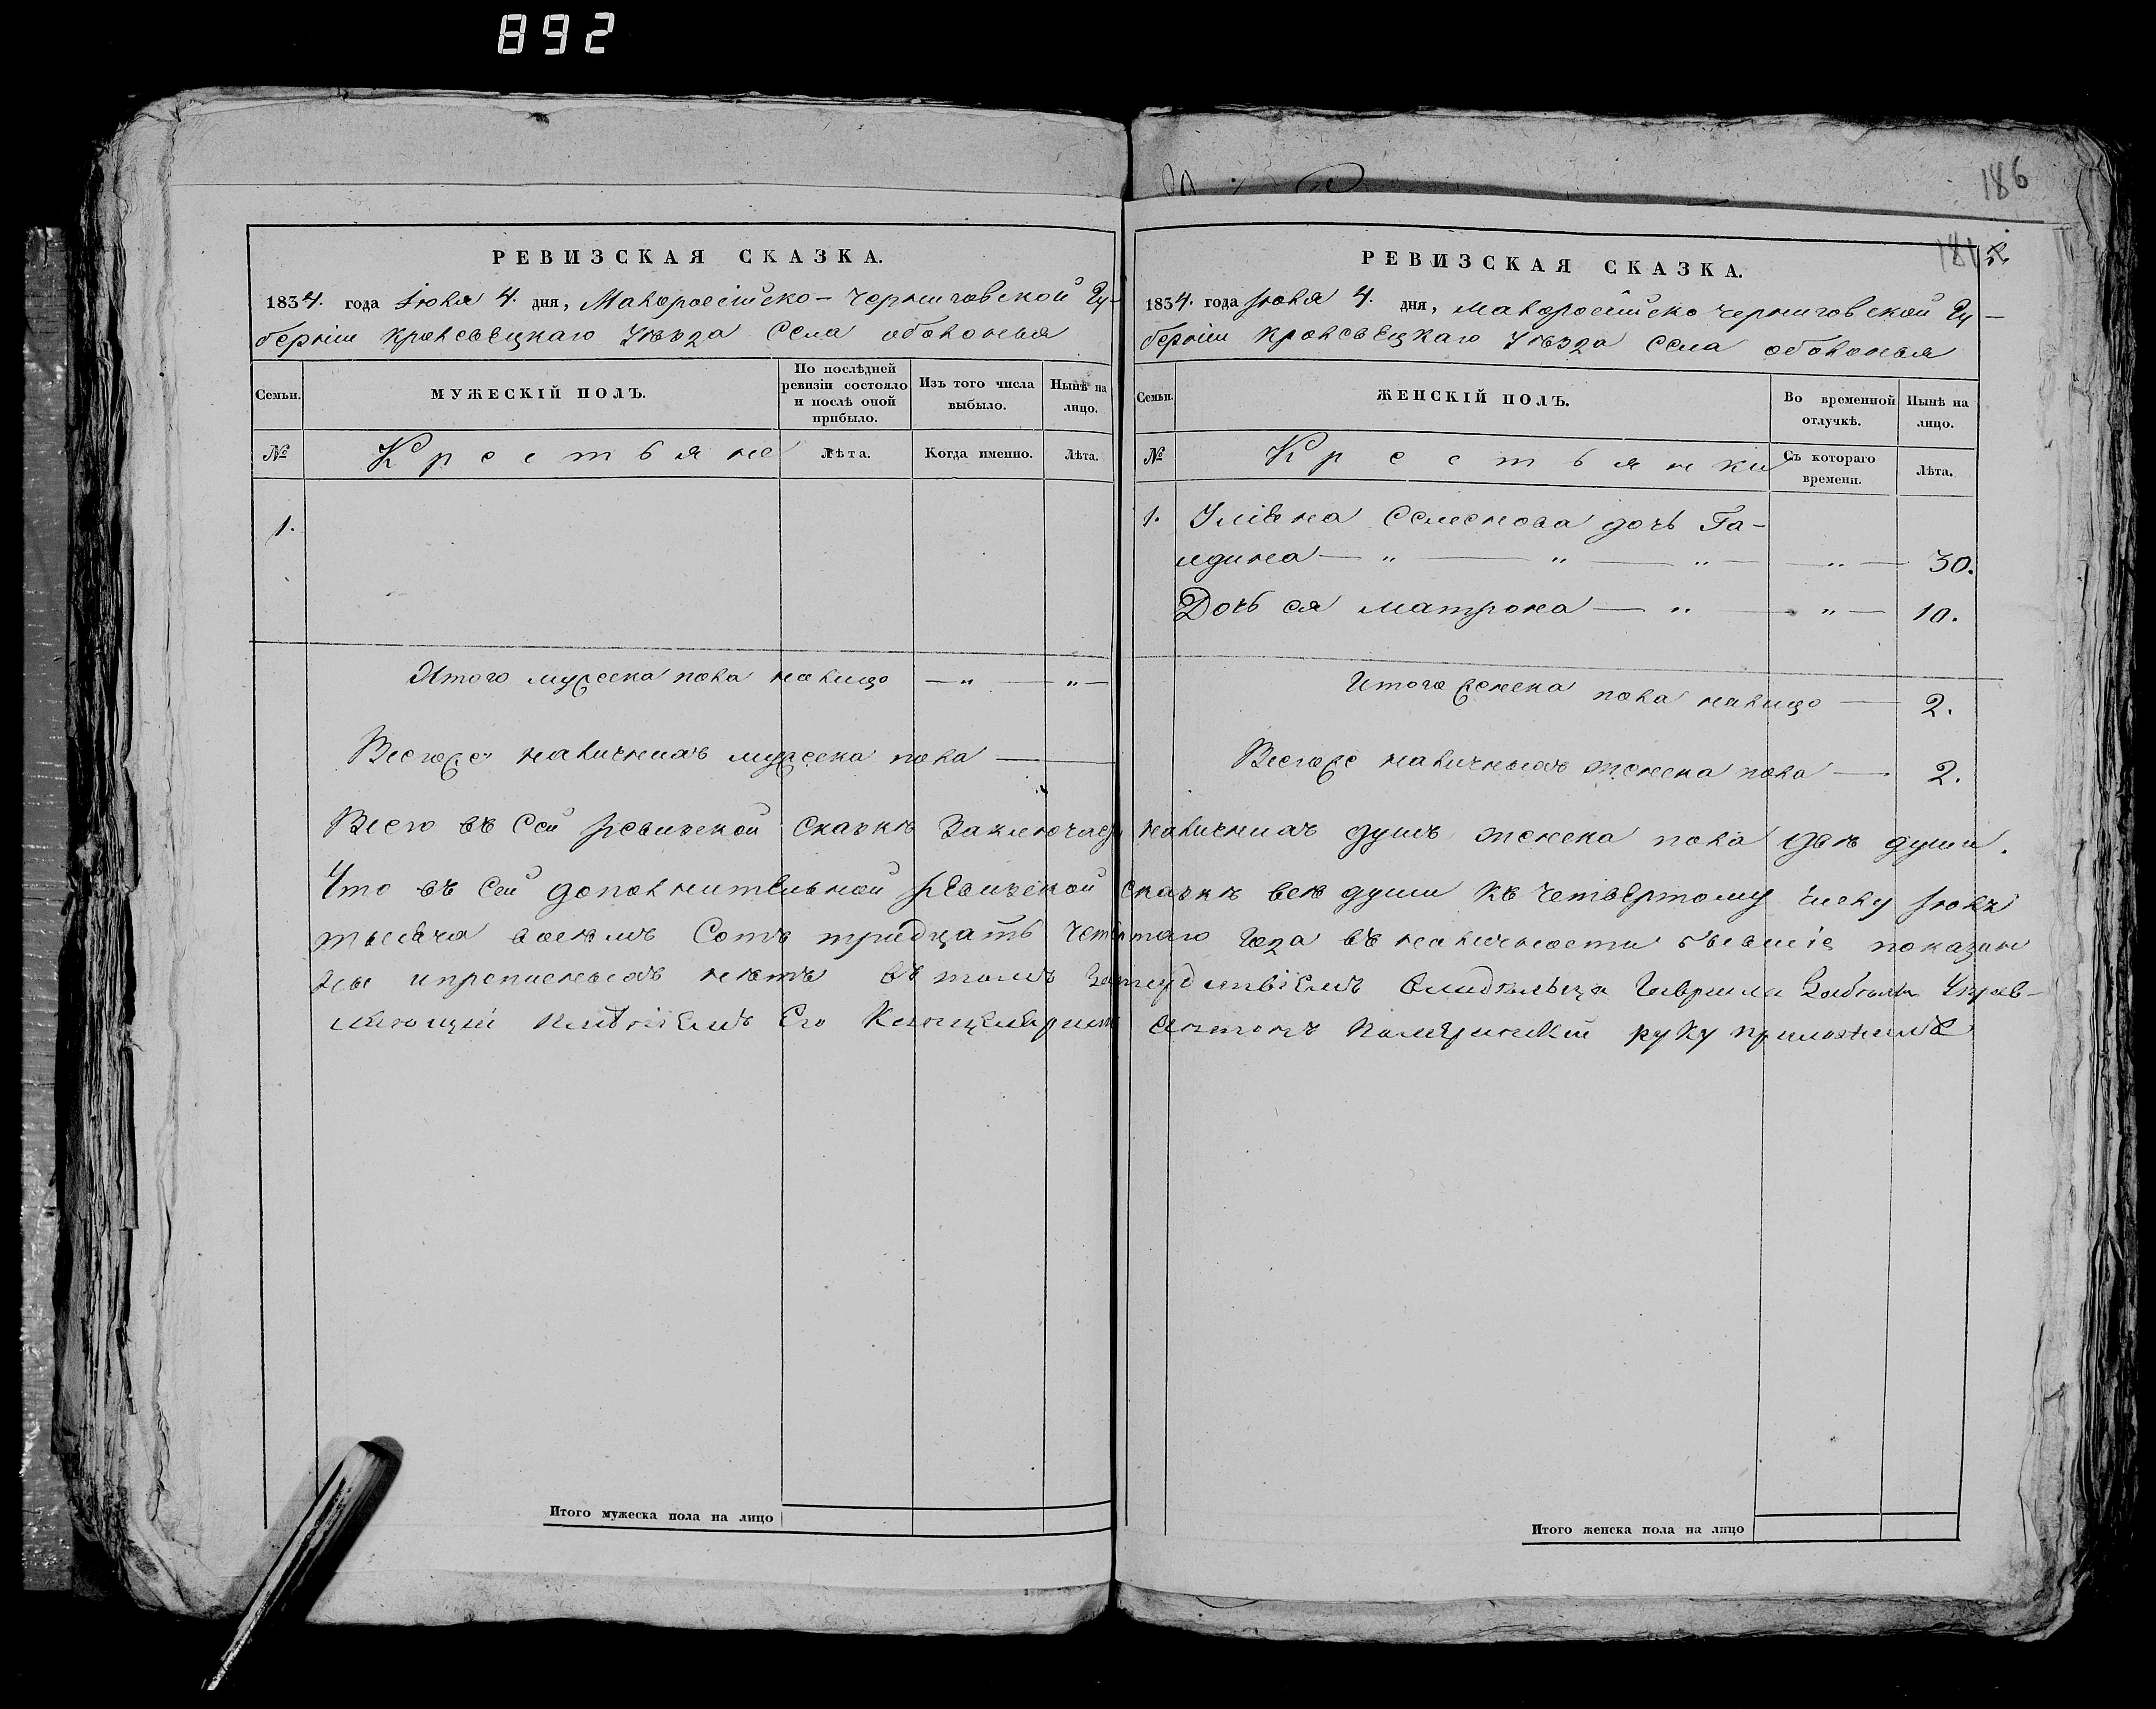 892
186
РЕВИЗСКАЯ СКАЗКА.
1834. года Іюля 4. дня, Малороссійско-Черниговской Гу-
берніи Кролевецкаго Уѣзда Села оболонья
Семьи. МУЖЕСКІЙ ПОЛЪ. По послѣдней ревизіи состояло и послѣ оной прибыло. Изъ того числа выбыло. Нынѣ на лицо.
№ Крестьяне Лѣта. Когда именно. Лѣта.
1.
Итого мужеска пола налицо — " — " —
Всегоже наличныхъ мужеска пола —
РЕВИЗСКАЯ СКАЗКА.
1834. года Іюля 4. дня, малороссійско черниговской Гу-
берніи Кролевецкаго Уѣзда Села оболонья
Семьи. ЖЕНСКІЙ ПОЛЪ. Во временной отлучкѣ. Нынѣ на лицо.
№ Крестьянки Съ котораго времени. Лѣта.
1. Семенова дочь Га-
— " — " — " — " — 30.
Дочь ея матрона — " — " — 10.
Итого женска пола налицо — 2.
Всегоже наличныхъ женска пола — 2.
Всего въ сей ревизской сказкѣ наличныхъ душъ женска пола двѣ души.
Что въ сей дополнительной ревизской сказкѣ всѣ души къ четвертому числу
тысяча восемъ сотъ тридцать года въ наличности бывшіе
и прописныхъ нѣтъ въ томъ Гаврила Управ-
ляющій имѣніемъ Его руку приложилъ
Итого мужеска пола на лицо
Итого женска пола на лицо